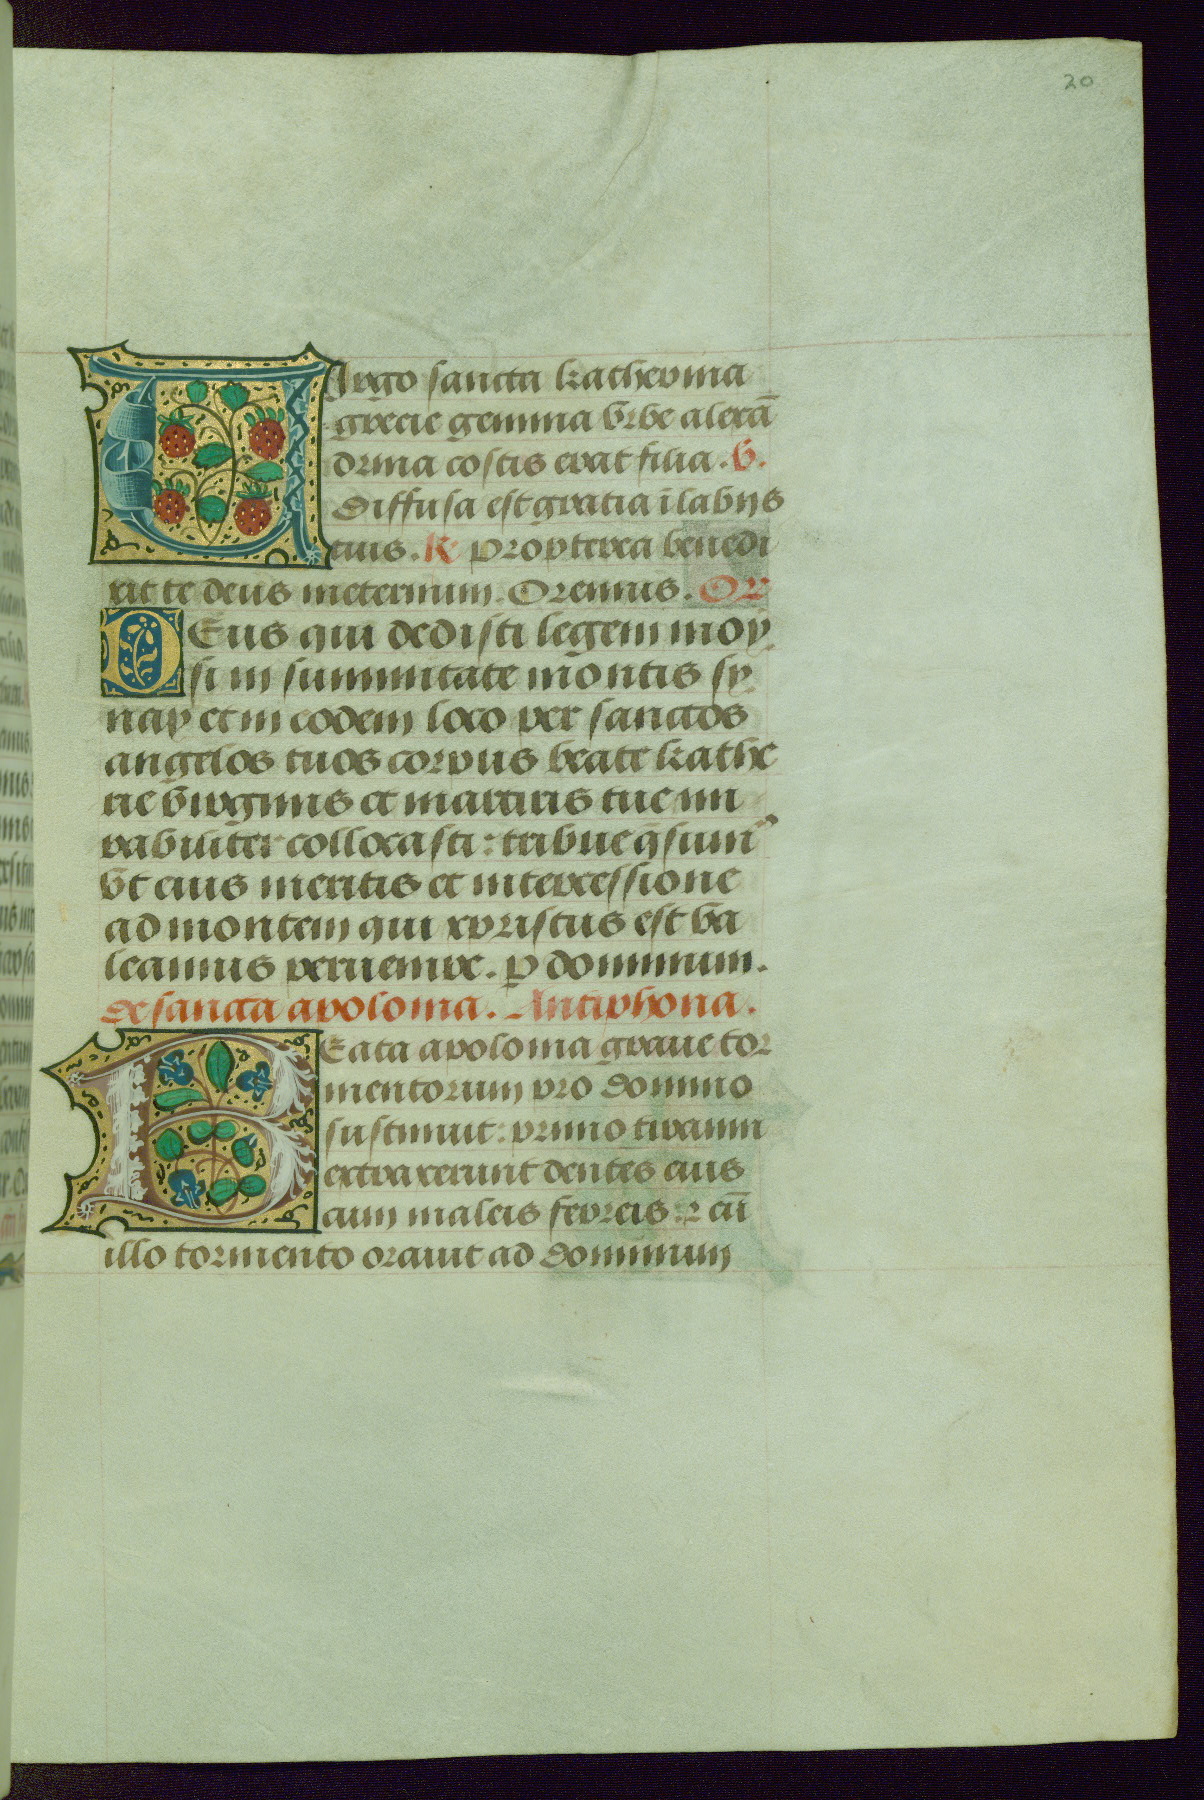 20
Virgo sancta katherina
grecie gemma vrbe alexā
drina costis erat filia. V.
Diffusa est gratia ī labijs
tuis. R Propterea benedi
xit te deus ineternum. Oremus. Or
DEus qui dedisti legem moy
si in summitate montis sy
nay et in eodem loco per sanctos
angelos tuos corpus beate kathe
rie virginis et martiris tue mi
rabiliter collocasti: tribue q̄sumꝰ
vt eius meritis et intercessione
ad montem qui xpristus est va
leamus peruenire. p dominum.
De sancta apolonia. Antiphona.
BEata apolonia graue tor
mentorum pro domino
sustinuit: primo tiranni
extraxerunt dentes eius
cum maleis ferreis: ⁊ cū
illo tormento orauit ad dominum